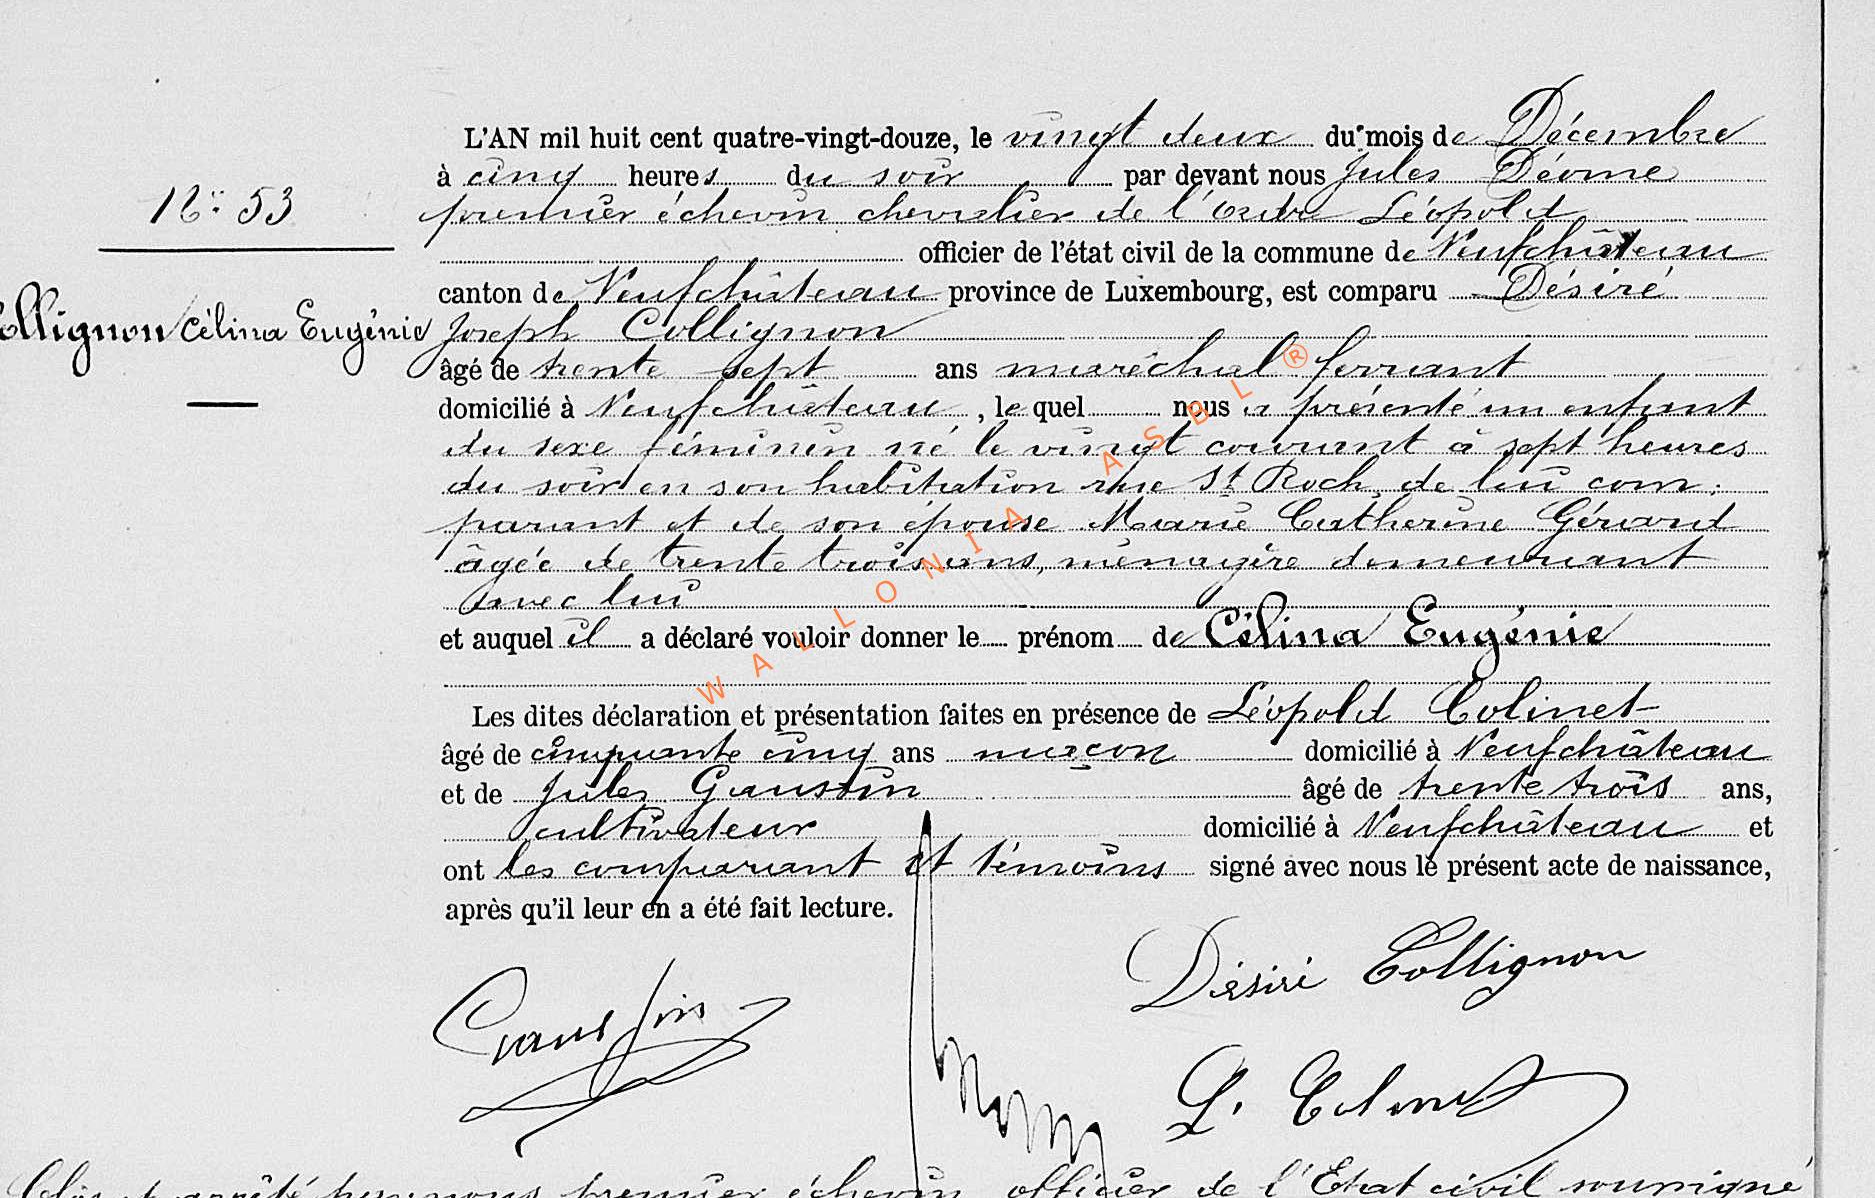 L'AN mil huit cent quatre-vingt-douze, le vingt deux du mois de Décembre
à cinq heures du soir par devant nous Jules Déome
N° 53
premier échevin chevalier de l'Ordre Léopold
officier de l'état civil de la commune de Neufchâteau
canton de Neufchâteau province de Luxembourg, est comparu Désiré
Collignon Célina Eugénie
Joseph Collignon
âgé de trente sept ans maréchal ferrant
domicilié à Neufchâteau, le quel nous a présenté un enfant
du sexe féminin né le vingt courant à sept heures
du soir en son habitation rue St Roch, de lui com:
parant et de son épouse Marie Catherine Gérard
âgée de trente trois ans, ménagère demeurant
avec lui
et auquel il a déclaré vouloir donner le prénom de Célina Eugénie
WALLONIA ASBL ®
Les dites déclaration et présentation faites en présence de Léopold Colinet
âgé de cinquante cinq ans maçon domicilié à Neufchâteau
et de Jules Gaussin âgé de trente trois ans,
cultivateur domicilié à Neufchâteau et
ont les comparant et témoins signé avec nous le présent acte de naissance,
après qu'il leur en a été fait lecture.
Désiré Collignon
L. Colinet
Clos et arrêté par nous premier échevin officier de l'Etat civil soussigné